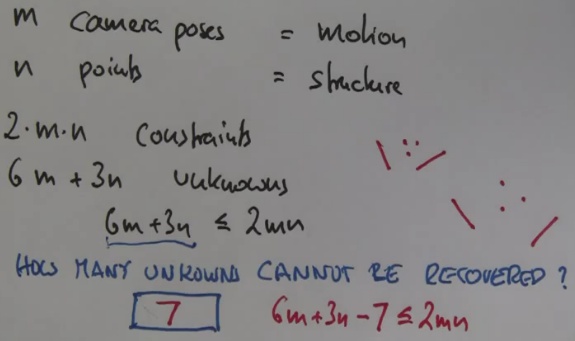 m camera poses = motion
n points = structure
2·m·n constraints
6m + 3n unknowns
6m+3n ≤ 2mn
HOW MANY UNKOWNS CANNOT BE RECOVERED?
7 6m+3n-7≤2mn